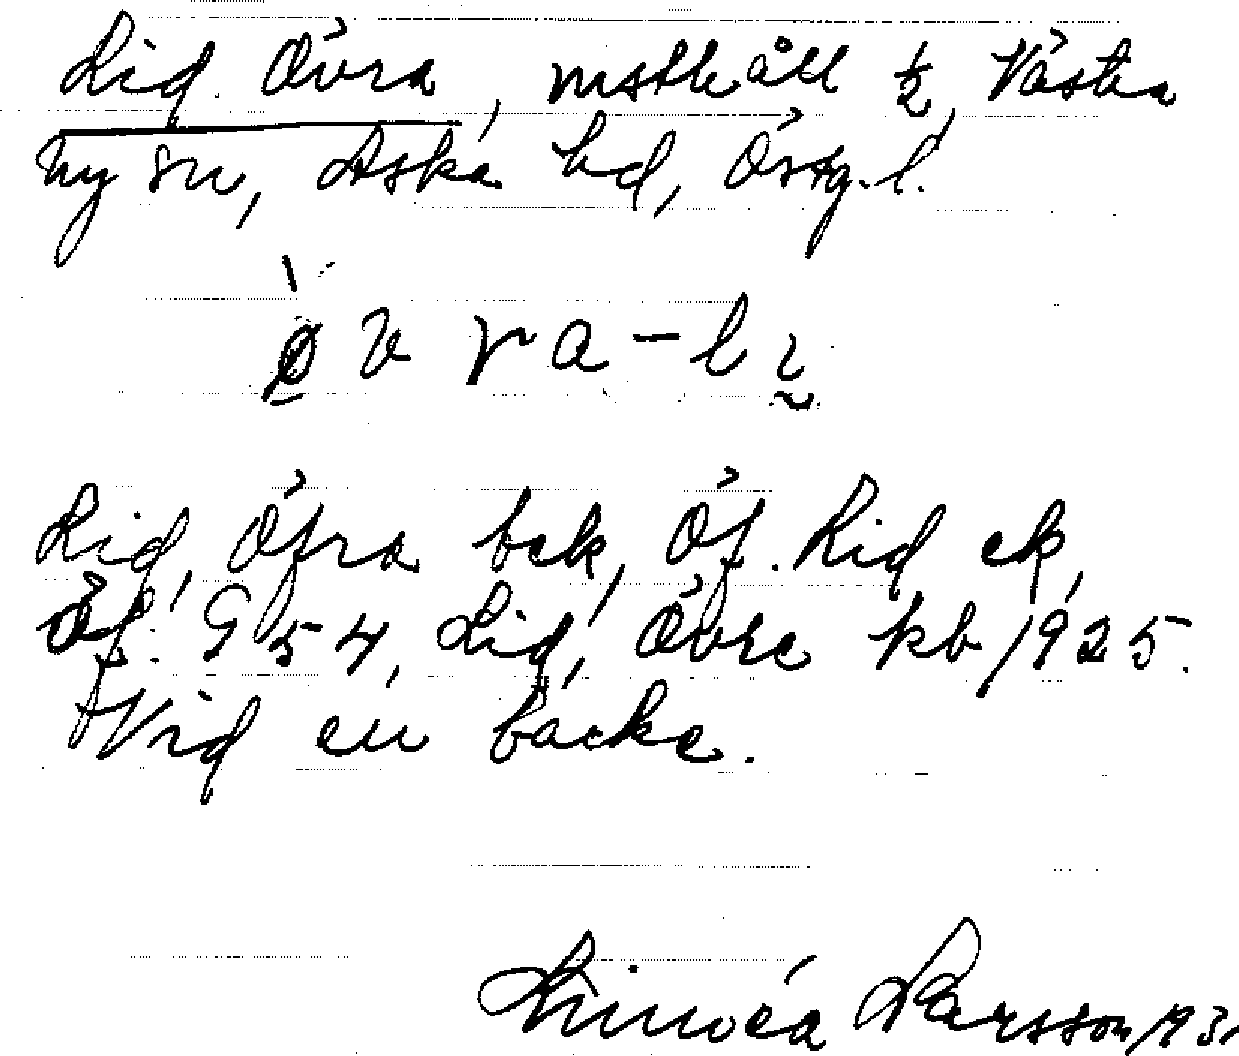 Lid, Övra, mstkåll ½, Västra
Ny sn, Aska hd, Östg.l.
övra-lı
Lid, Öfra bek, Öf. Lid ek,
Öf. G 54, Lid, Övre kb 1925.
Vid en backe.
Linnéa Larsson 193